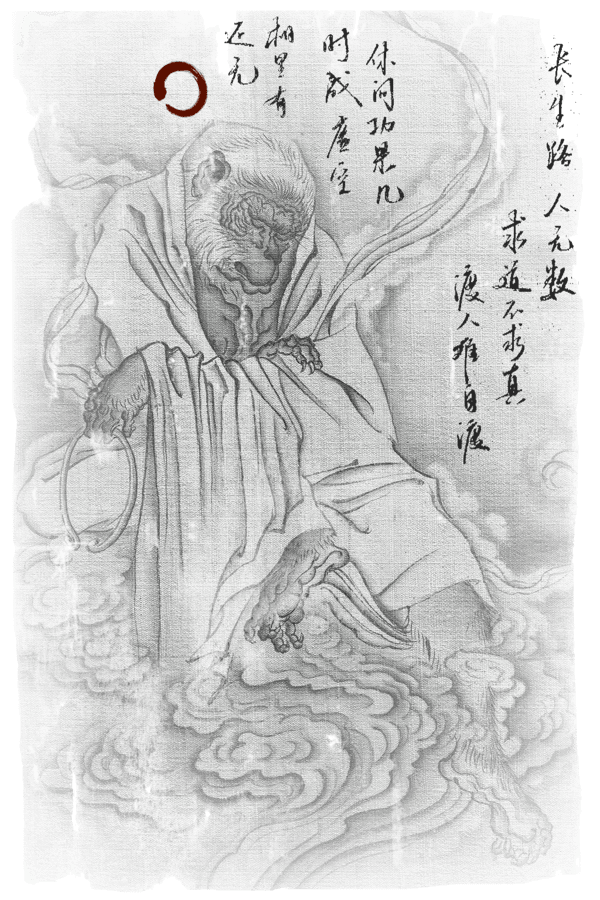 长生路 人无数
求道不求真
渡人难自渡
休问功果几
时成 虚空
相里有
还无